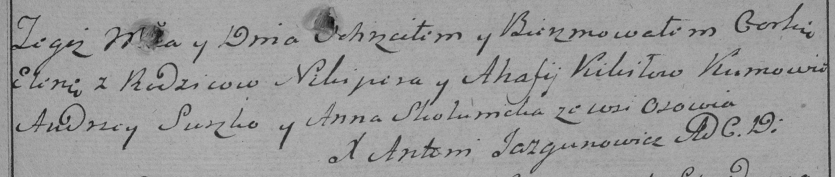 Tegiż Mca y Dnia Ochrzciłem y Bierzmowałem Corkię
Elenę z Rodzicow Nikipera y Ahafij Kikiłow Kumowie
Andrzey Suszko y Anna Skołumcka ze wsi Osowia
X Antoni Jazgunowicz